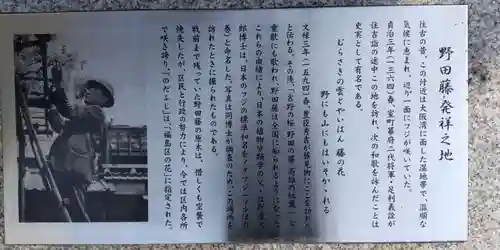 野田藤発祥之地
住古の昔、この付近は大阪湾に面した湿地帯で、温順な
気候に恵まれ、辺り一面にフジが咲いていた。
貞治三年(一三六四)春、室町幕府二代将軍・足利義詮が
住吉詣の途中この地を訪れ、次の和歌を詠んだことは
史実として有名である。
むらさきの雲とやいはん 藤の花
野にも山にもはいぞかゝれる
文禄三年(一五九四)春、豊臣秀吉が藤見物にここを訪れ
と伝わる。その後、「吉野の桜 野田の藤 高雄の紅葉」と
童歌にも歌われ、野田藤は全国に知られるようになった。
これらの由緒により、日本の植物分類学の父、牧野富太
郎博士は、日本のフジの標準和名を「ノダフジ」(つるは右
巻)と命名した。写真は同博士が調査のため、この場所を
訪れたときに撮られたものである。
戦前まで残っていた野田藤の原木は、惜しくも空襲で
焼失したが、区民と行政の努力により、今では区内各所
で咲き誇り、「のだふじ」は「福島区の花」に指定された。